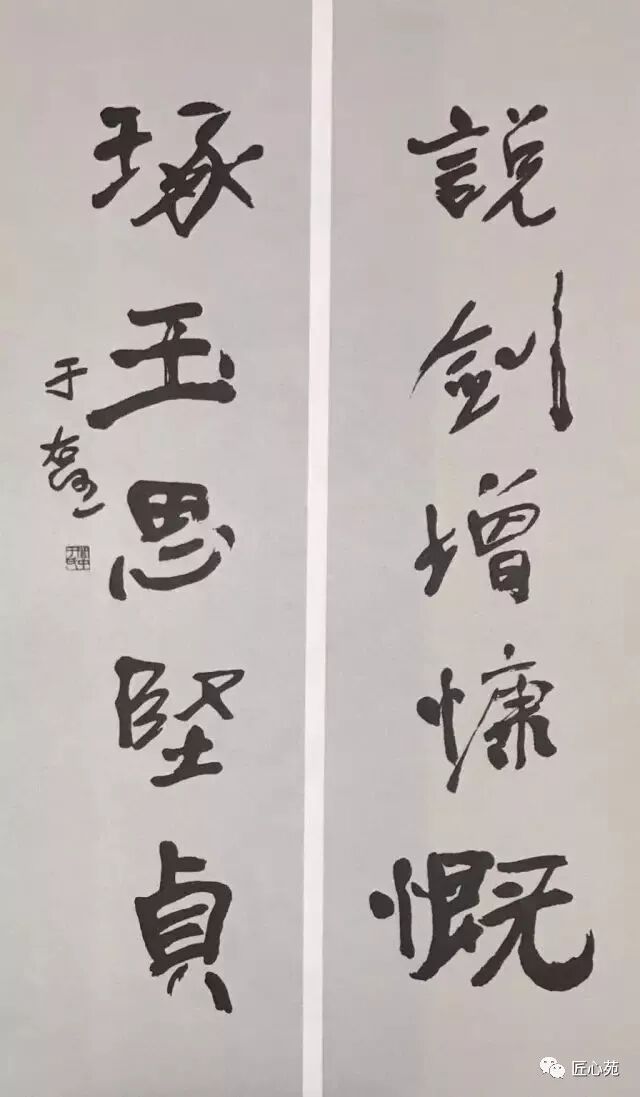 説劍增慷慨
琢玉思堅貞
于右任
匠心苑